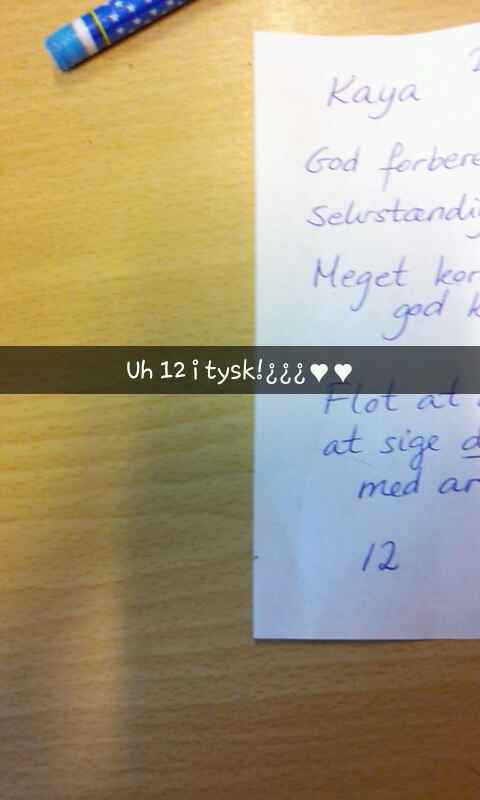 Kaya
God forbere
Selvstændi
Meget kor
god k
Uh 12 i tysk!¿¿¿♥♥
Flot at
at sige d
med ar
12